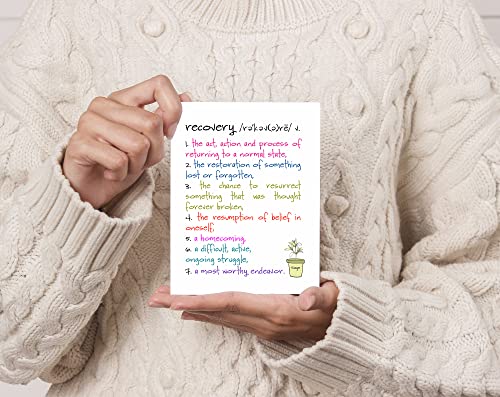 recovery /rəˈkəv(ə)rē/ v.
1. the act, action and process of
returning to a normal state.
2. the restoration of something
lost or forgotten.
3. the chance to resurrect
something that was thought
forever broken.
4. the resumption of belief in
oneself.
5. a homecoming.
6. a difficult, active,
ongoing struggle.
7. a most worthy endeavor.